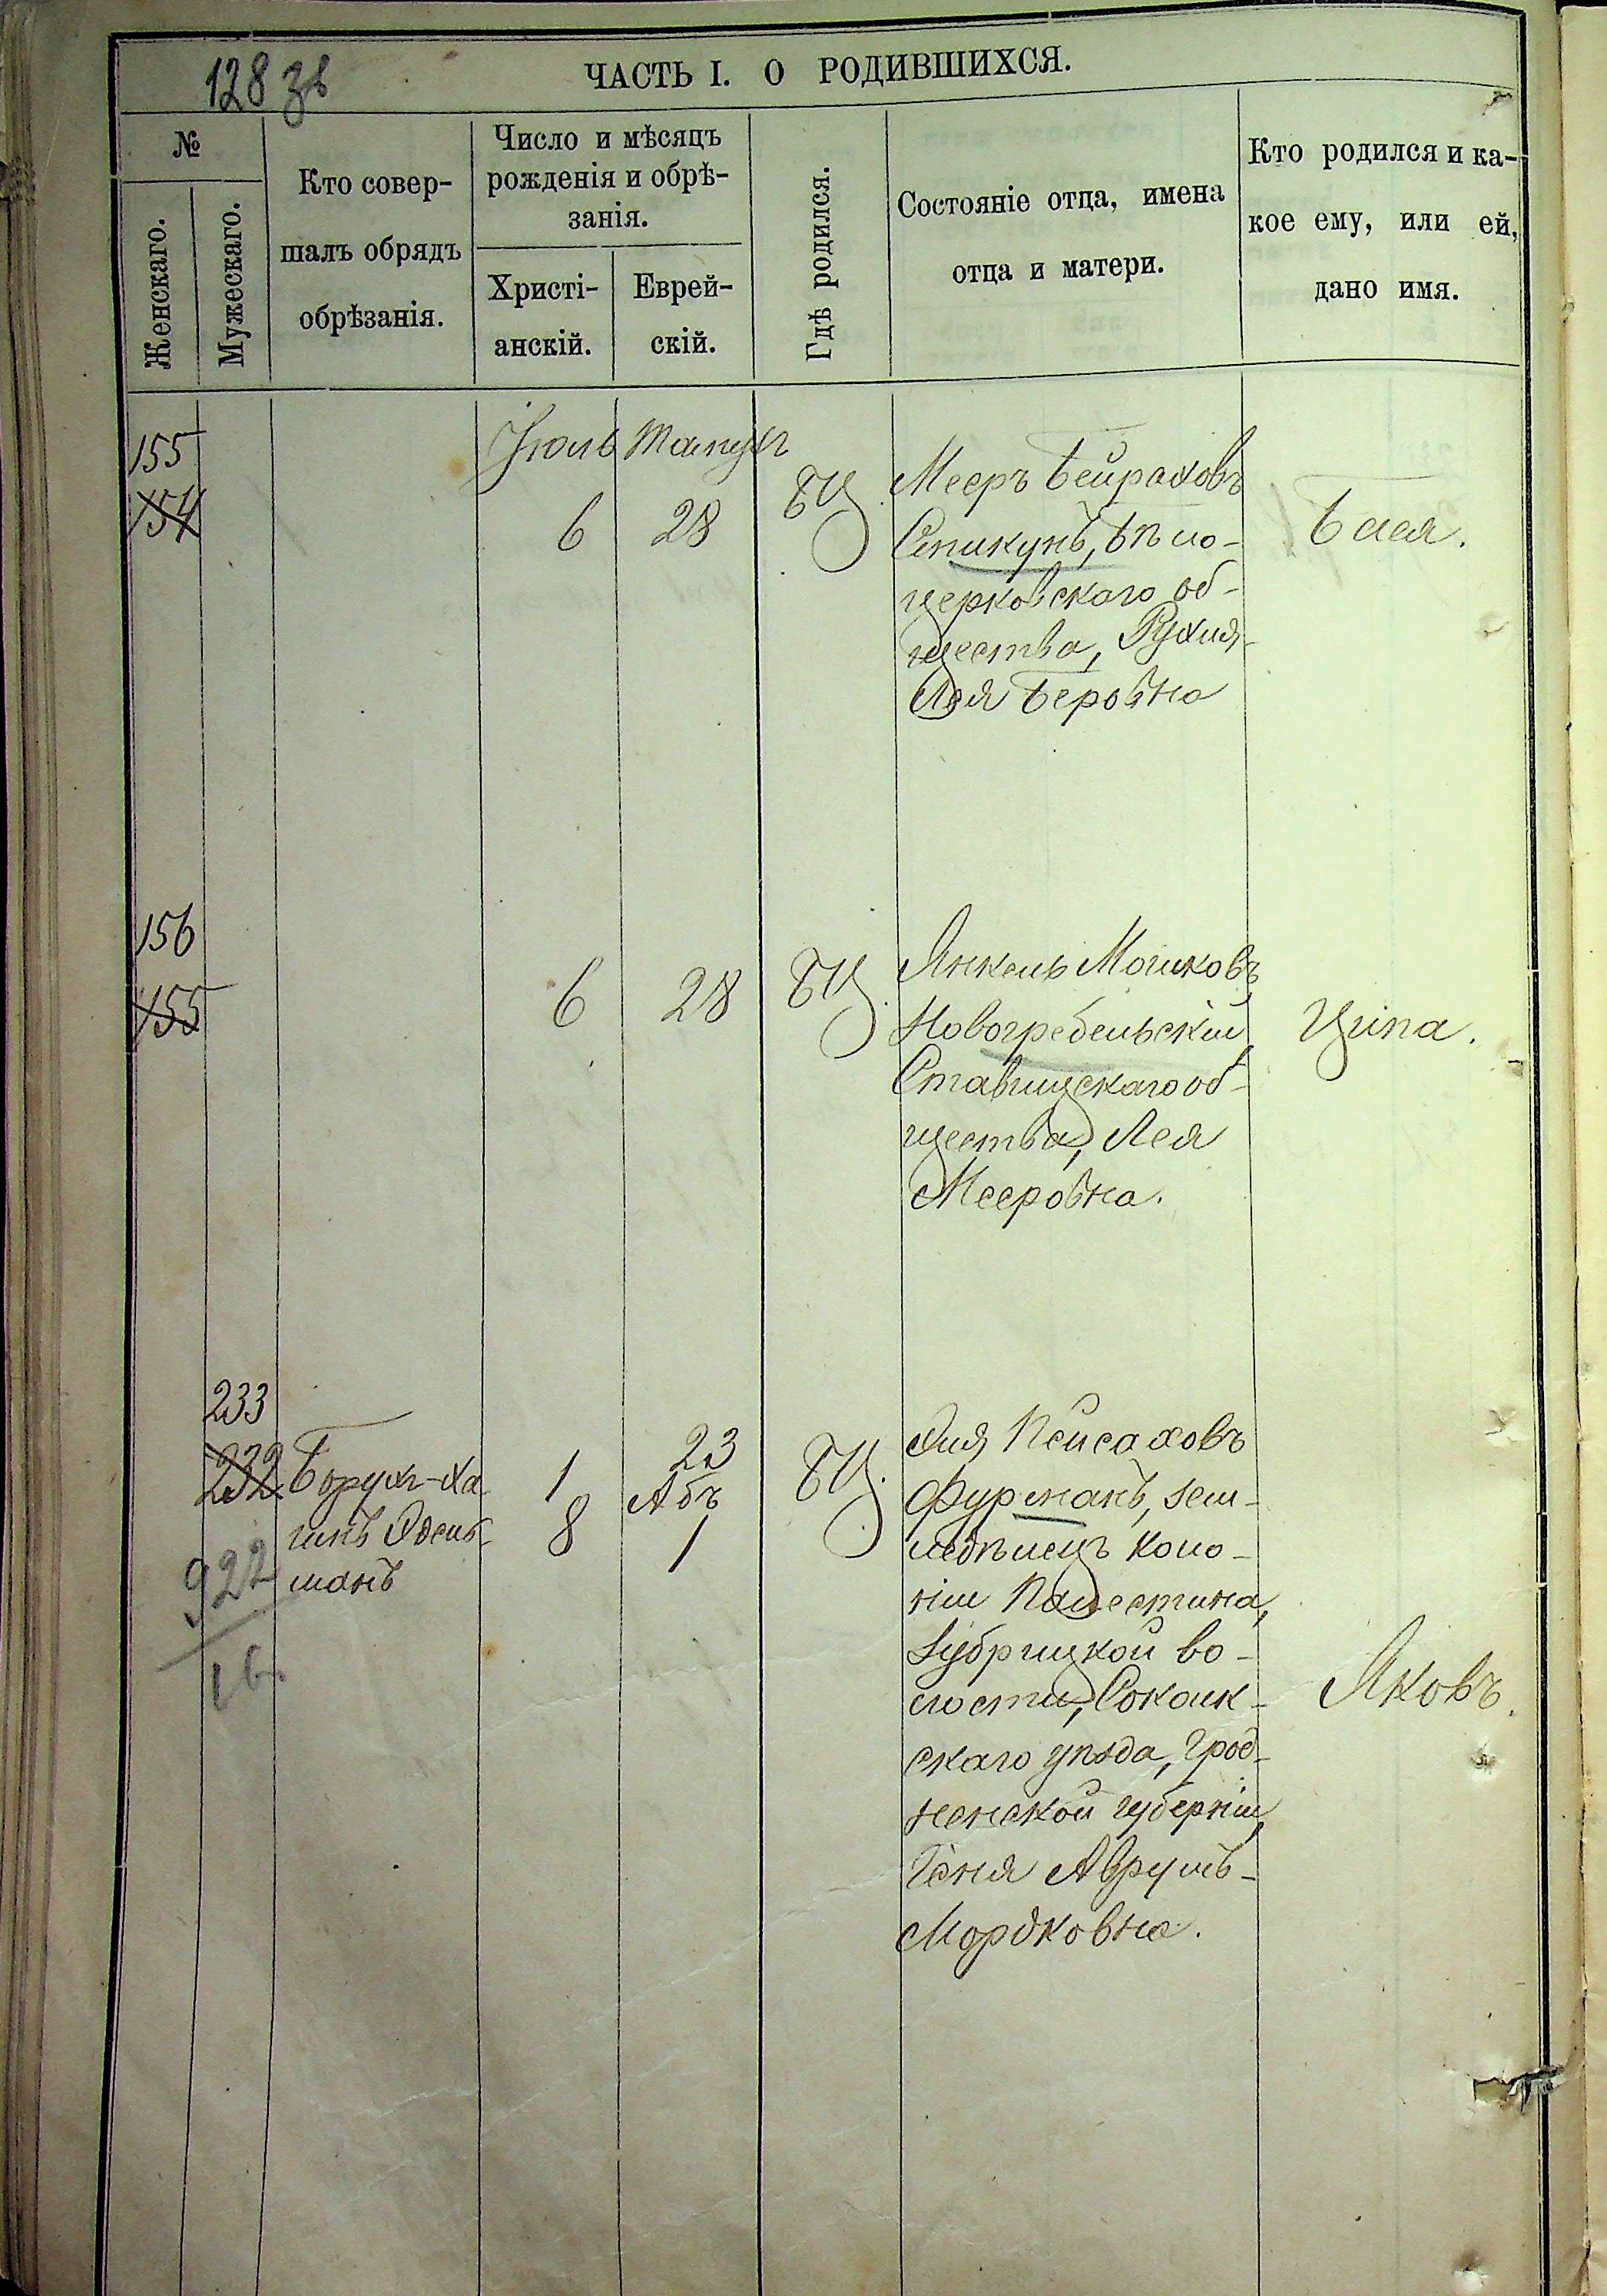 128 зв
ЧАСТЬ I. О РОДИВШИХСЯ.
№
Женскаго.
Мужескаго.
Кто совер-
шалъ обрядъ
обрѣзанія.
Число и мѣсяцъ
рожденія и обрѣ-
занія.
Христі-
анскій.
Еврей-
скій.
Гдѣ родился.
Состояніе отца, имена
отца и матери.
Кто родился и ка-
кое ему, или ей,
дано имя.
155
154
Іюль
Тамузъ
6
28
БЦ.
Мееръ Бейраховъ
Спикунъ, Бѣло-
церковскаго об-
щества, Рухля-
Лея Беровна
Бася.
156
155
6
28
БЦ.
Янкель Мошковъ
Новогребельскій
Ставищскаго об-
щества, Лея
Мееровна.
Ципа.
233
232
922
16.
Борухъ-Ха-
имъ Эдель-
манъ
1
8
23
Абъ
1
БЦ.
Эля Пейсаховъ
Фурманъ, зем-
ледѣлецъ коло-
ніи Палестина,
Зубрицкой во-
лости, Соколь-
скаго уѣзда, Грод-
ненской губерніи,
Геня Аврумъ-
Мордковна.
Яковъ.